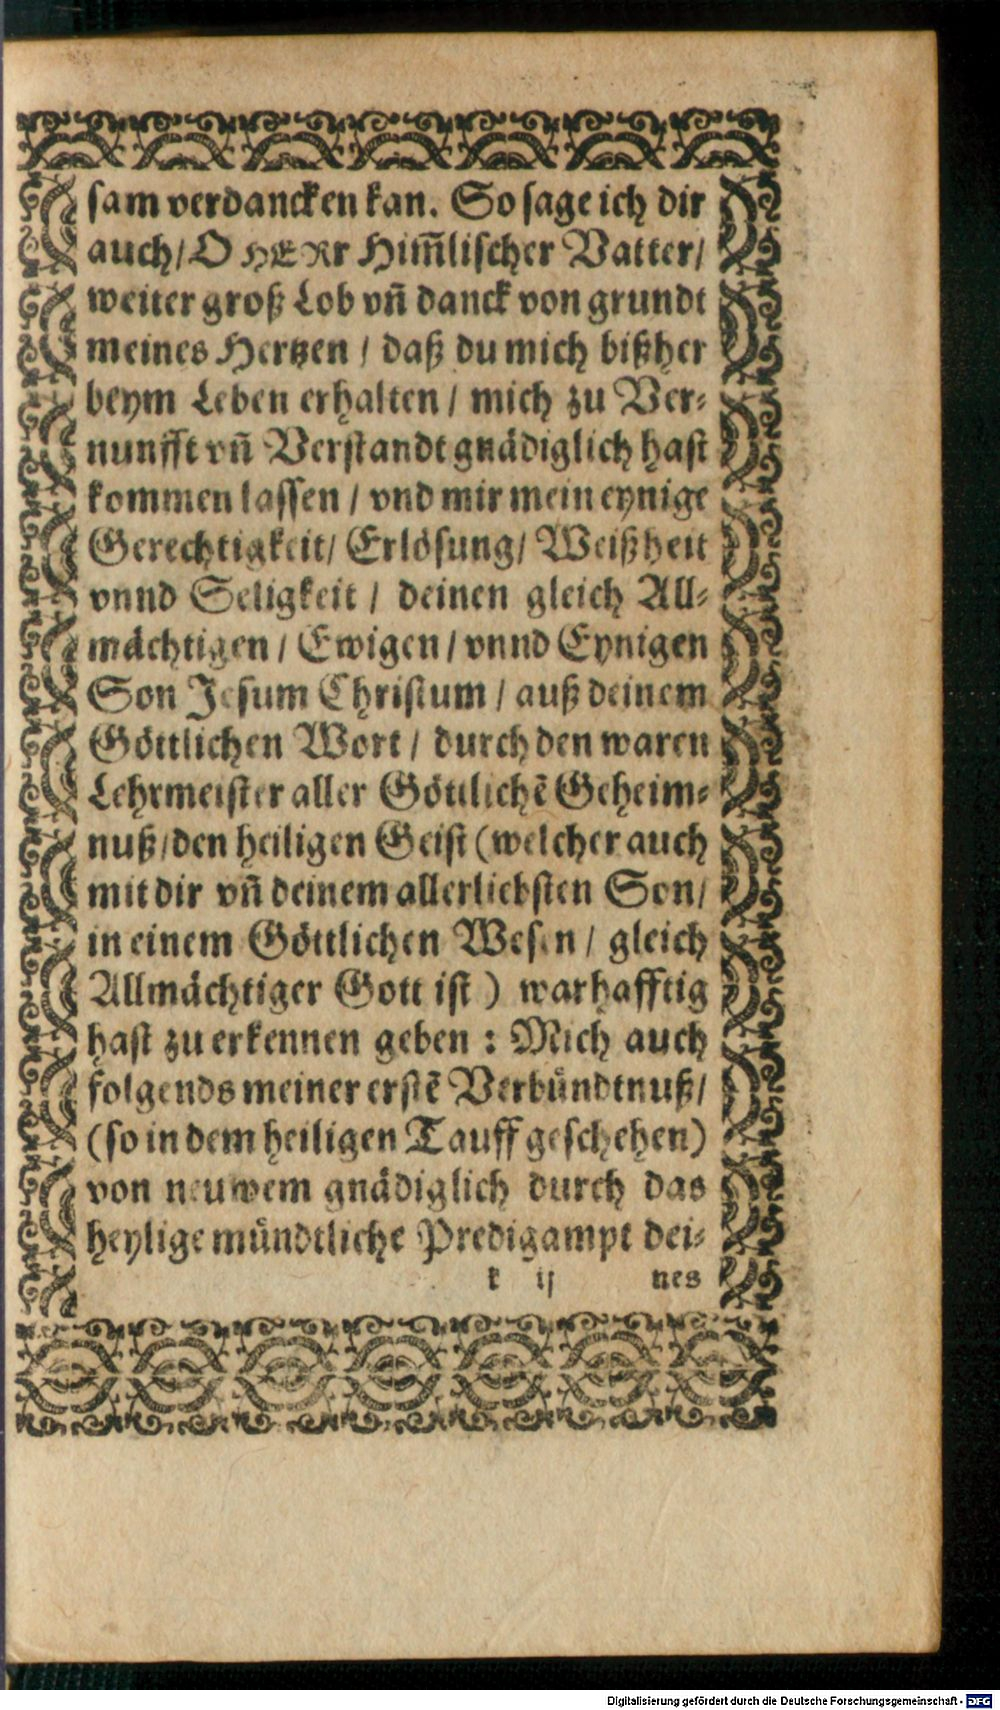 sam verdancken kan. So sage ich dir
auch/ O HERr Him̃lischer Vatter/
weiter groß Lob vñ danck von grundt
meines Hertzen / daß du mich bißher
beym Leben erhalten / mich zu Ver⸗
nunfft vñ Verstandt gnädiglich hast
kommen lassen / vnd mir mein eynige
Gerechtigkeit/ Erlösung/ Weißheit
vnnd Seligkeit / deinen gleich All⸗
mächtigen / Ewigen / vnnd Eynigen
Son Jesum Christum / auß deinem
Göttlichen Wort / durch den waren
Lehrmeister aller Göttlichẽ Geheim⸗
nuß/den heiligen Geist (welcher auch
mit dir vñ deinem allerliebsten Son/
in einem Göttlichen Wesen / gleich
Allmächtiger Gott ist ) warhafftig
hast zu erkennen geben : Mich auch
folgends meiner erstẽ Verbündtnuß/
(so in dem heiligen Tauff geschehen)
von neuwem gnädiglich durch das
heylige mündtliche Predigampt dei⸗
k ij nes
Digitalisierung gefördert durch die Deutsche Forschungsgemeinschaft - DFG